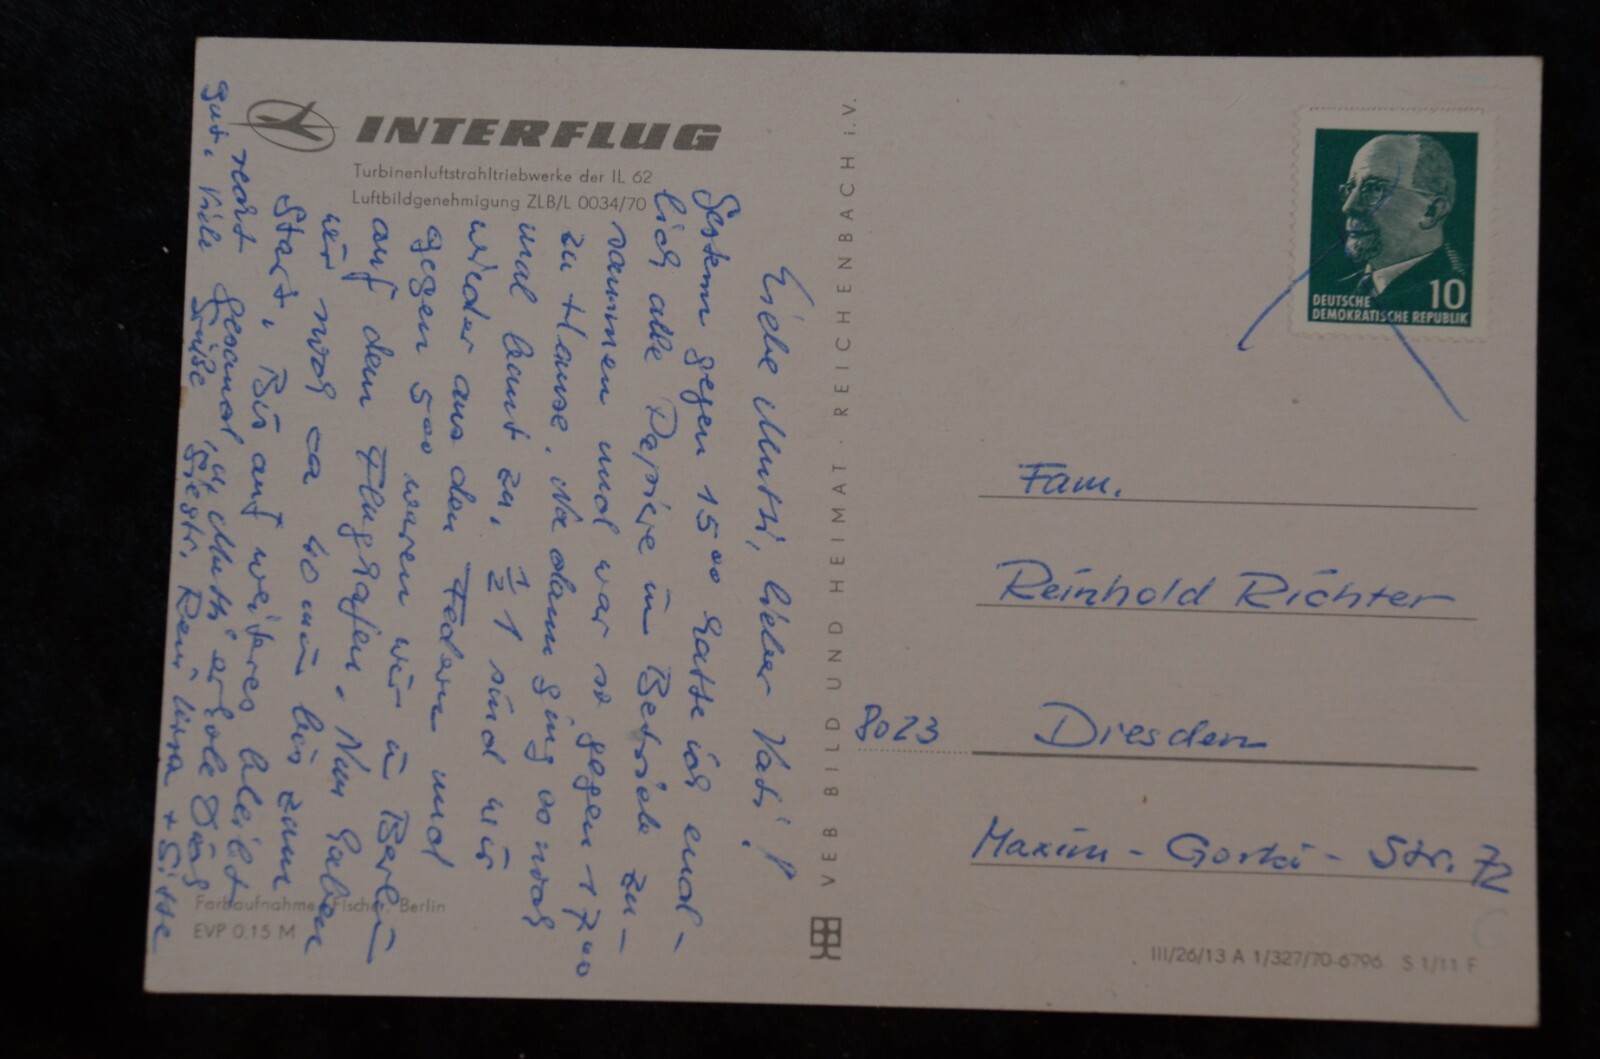 INTERFLUG
Turbinenluftstrahltriebwerke der IL 62
Luftbildgenehmigung ZLB/L 0034/70
Liebe Mutti, lieber Vati!
Gestern gegen 15⁰⁰ hatte ich end-
lich alle Papiere im Betrieb zu-
sammen und war so gegen 17⁰⁰
zu Hause. Na dann ging es noch
mal bunt zu. ½ 1 sind wir
wieder aus den Federn und
gegen 5⁰⁰ waren wir in Berlin
auf dem Flughafen. Nun haben
wir noch ca 40 min bis zum
Start. Bis auf weiteres bleibt
recht gesund, u. Mutti erhole Dich
gut. Viele Grüße Siegfr. Reni +
VEB BILD UND HEIMAT · REICHENBACH i.V.
DEUTSCHE
DEMOKRATISCHE REPUBLIK
10
Fam.
Reinhold Richter
8023 Dresden
Maxim-Gorki-Str. 72
Farbaufnahme: Fischer, Berlin
EVP 0.15 M
III/26/13 A 1/327/70-6796 S 1/11 F